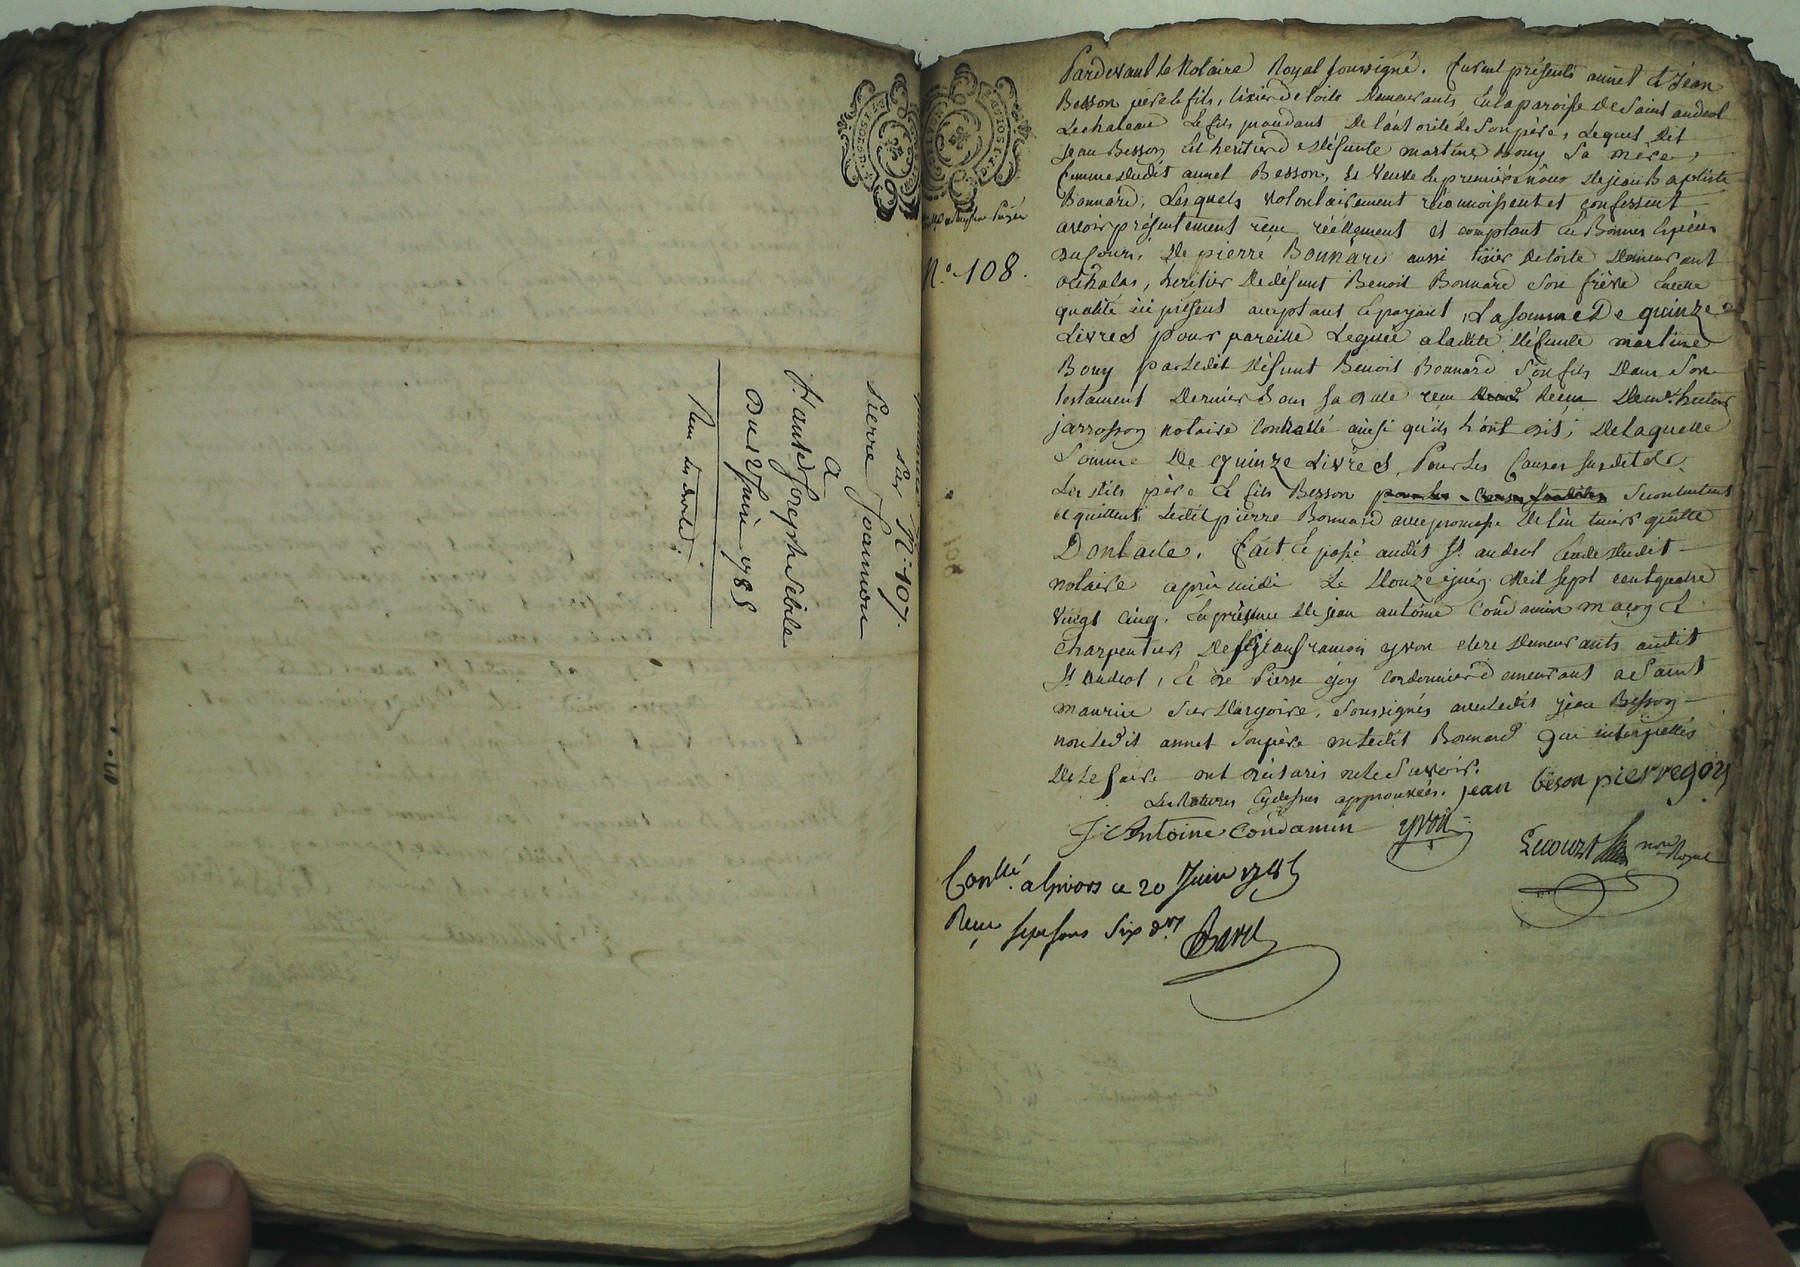 par N.° 107.
Pierre Joannon
a
F. Antde Joseph Sebile
Du 12 Juin 1785
Reçu les droits.
N.° 108.
Pardevant le Notaire Royal soussigné. furent présents annet et Jéan
Besson père et fils, tixier de toile demeurants en la paroisse de Saint andeol
Lechateau le fils procédant de l'autorité de son père, Lequel dit
Jean Besson est heritier de défunte martine Bouy sa mère,
femme dudit annet Besson, et veuve en premières nôces de jean Baptiste
Bonnard, Lesquels volontairement réconnoissent et confessent
avoir présentement reçu réëllement et comptant en Bonnes espèces
du cours, de pierre Bonnard aussi tixier de toile demeurant
à Echalas, heritier de défunt Benoit Bonnard son frère en cette
qualité ici présent acceptant et payant, La somme De quinze
Livres pour pareille Leguée a ladite défunte martine
Bouy par ledit défunt Benoit Bonnard son fils dans son
testament dernier Bon sa date reçu
jarrosson notaire Controllé ainsi qu'ils l'ont dit; De laquelle
Somme De quinze Livres, Pour les Causes susdites
Les dits père et fils Besson pour les causes susdites se contentent
et quittent ledit pierre Bonnard avec promesse de l'en tenir quitte
Dont acte. fait et passé audit St. andeol étude dudit
notaire après midi Le douze juin mil sept cent quatre
vingt cinq. En présence de jean antoine Condamin maçon et
charpentier, de Sr. jean françois yvon clerc demeurants audit
St. andeol, et de Pierre gôy cordonnier demeurant a Saint
maurice sur dargoire, soussignés avec ledit jean Besson
non ledit annet son père ni ledit Bonnard qui interpellés
De Le faire ont déclaré ne le savoir.
Les Ratures cydessus approuvées. jean beson pierregôy
J: Antoine Condamin yvon
Lecourt nore Royal
Conllé. a Givors ce 20 Juin 1785
Reçu sept sous six drs Bavet